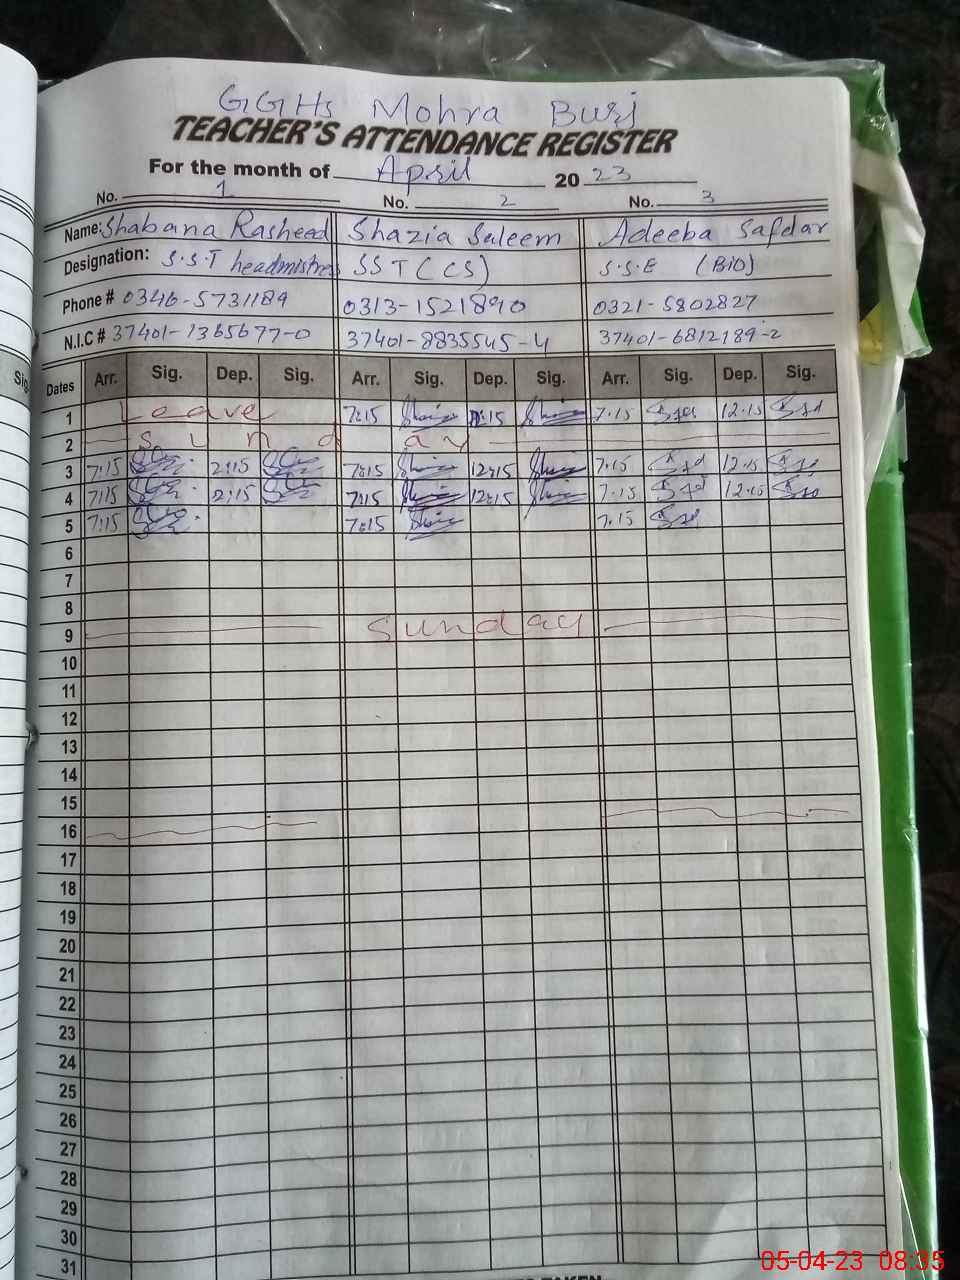 GGHS Mohra Burj
TEACHER'S ATTENDANCE REGISTER
For the month of April 2023
No. 1 No. 2 No. 3
Name: Shabana Rasheed Shazia Saleem Adeeba Safdar
Designation: S.S.T headmistress SST (CS) S.S.E (BIO)
Phone # 0346-5731189 0313-1521890 0321-5802827
N.I.C # 37401-1365677-0 37401-8835545-4 37401-6812189-2
Dates Arr. Sig. Dep. Sig. Arr. Sig. Dep. Sig. Arr. Sig. Dep. Sig.
Sig
1 Leave 7:15 12:15 7.15 12.15
2 Sunday
3 7:15 2:15 7:15 12:15 7.15 12.15
4 7:15 2:15 7:15 12:15 7.15 12.15
5 7:15 7:15 7.15
6
7
8
9 Sunday
10
11
12
13
14
15
16
17
18
19
20
21
22
23
24
25
26
27
28
29
30
31
05-04-23 08:35